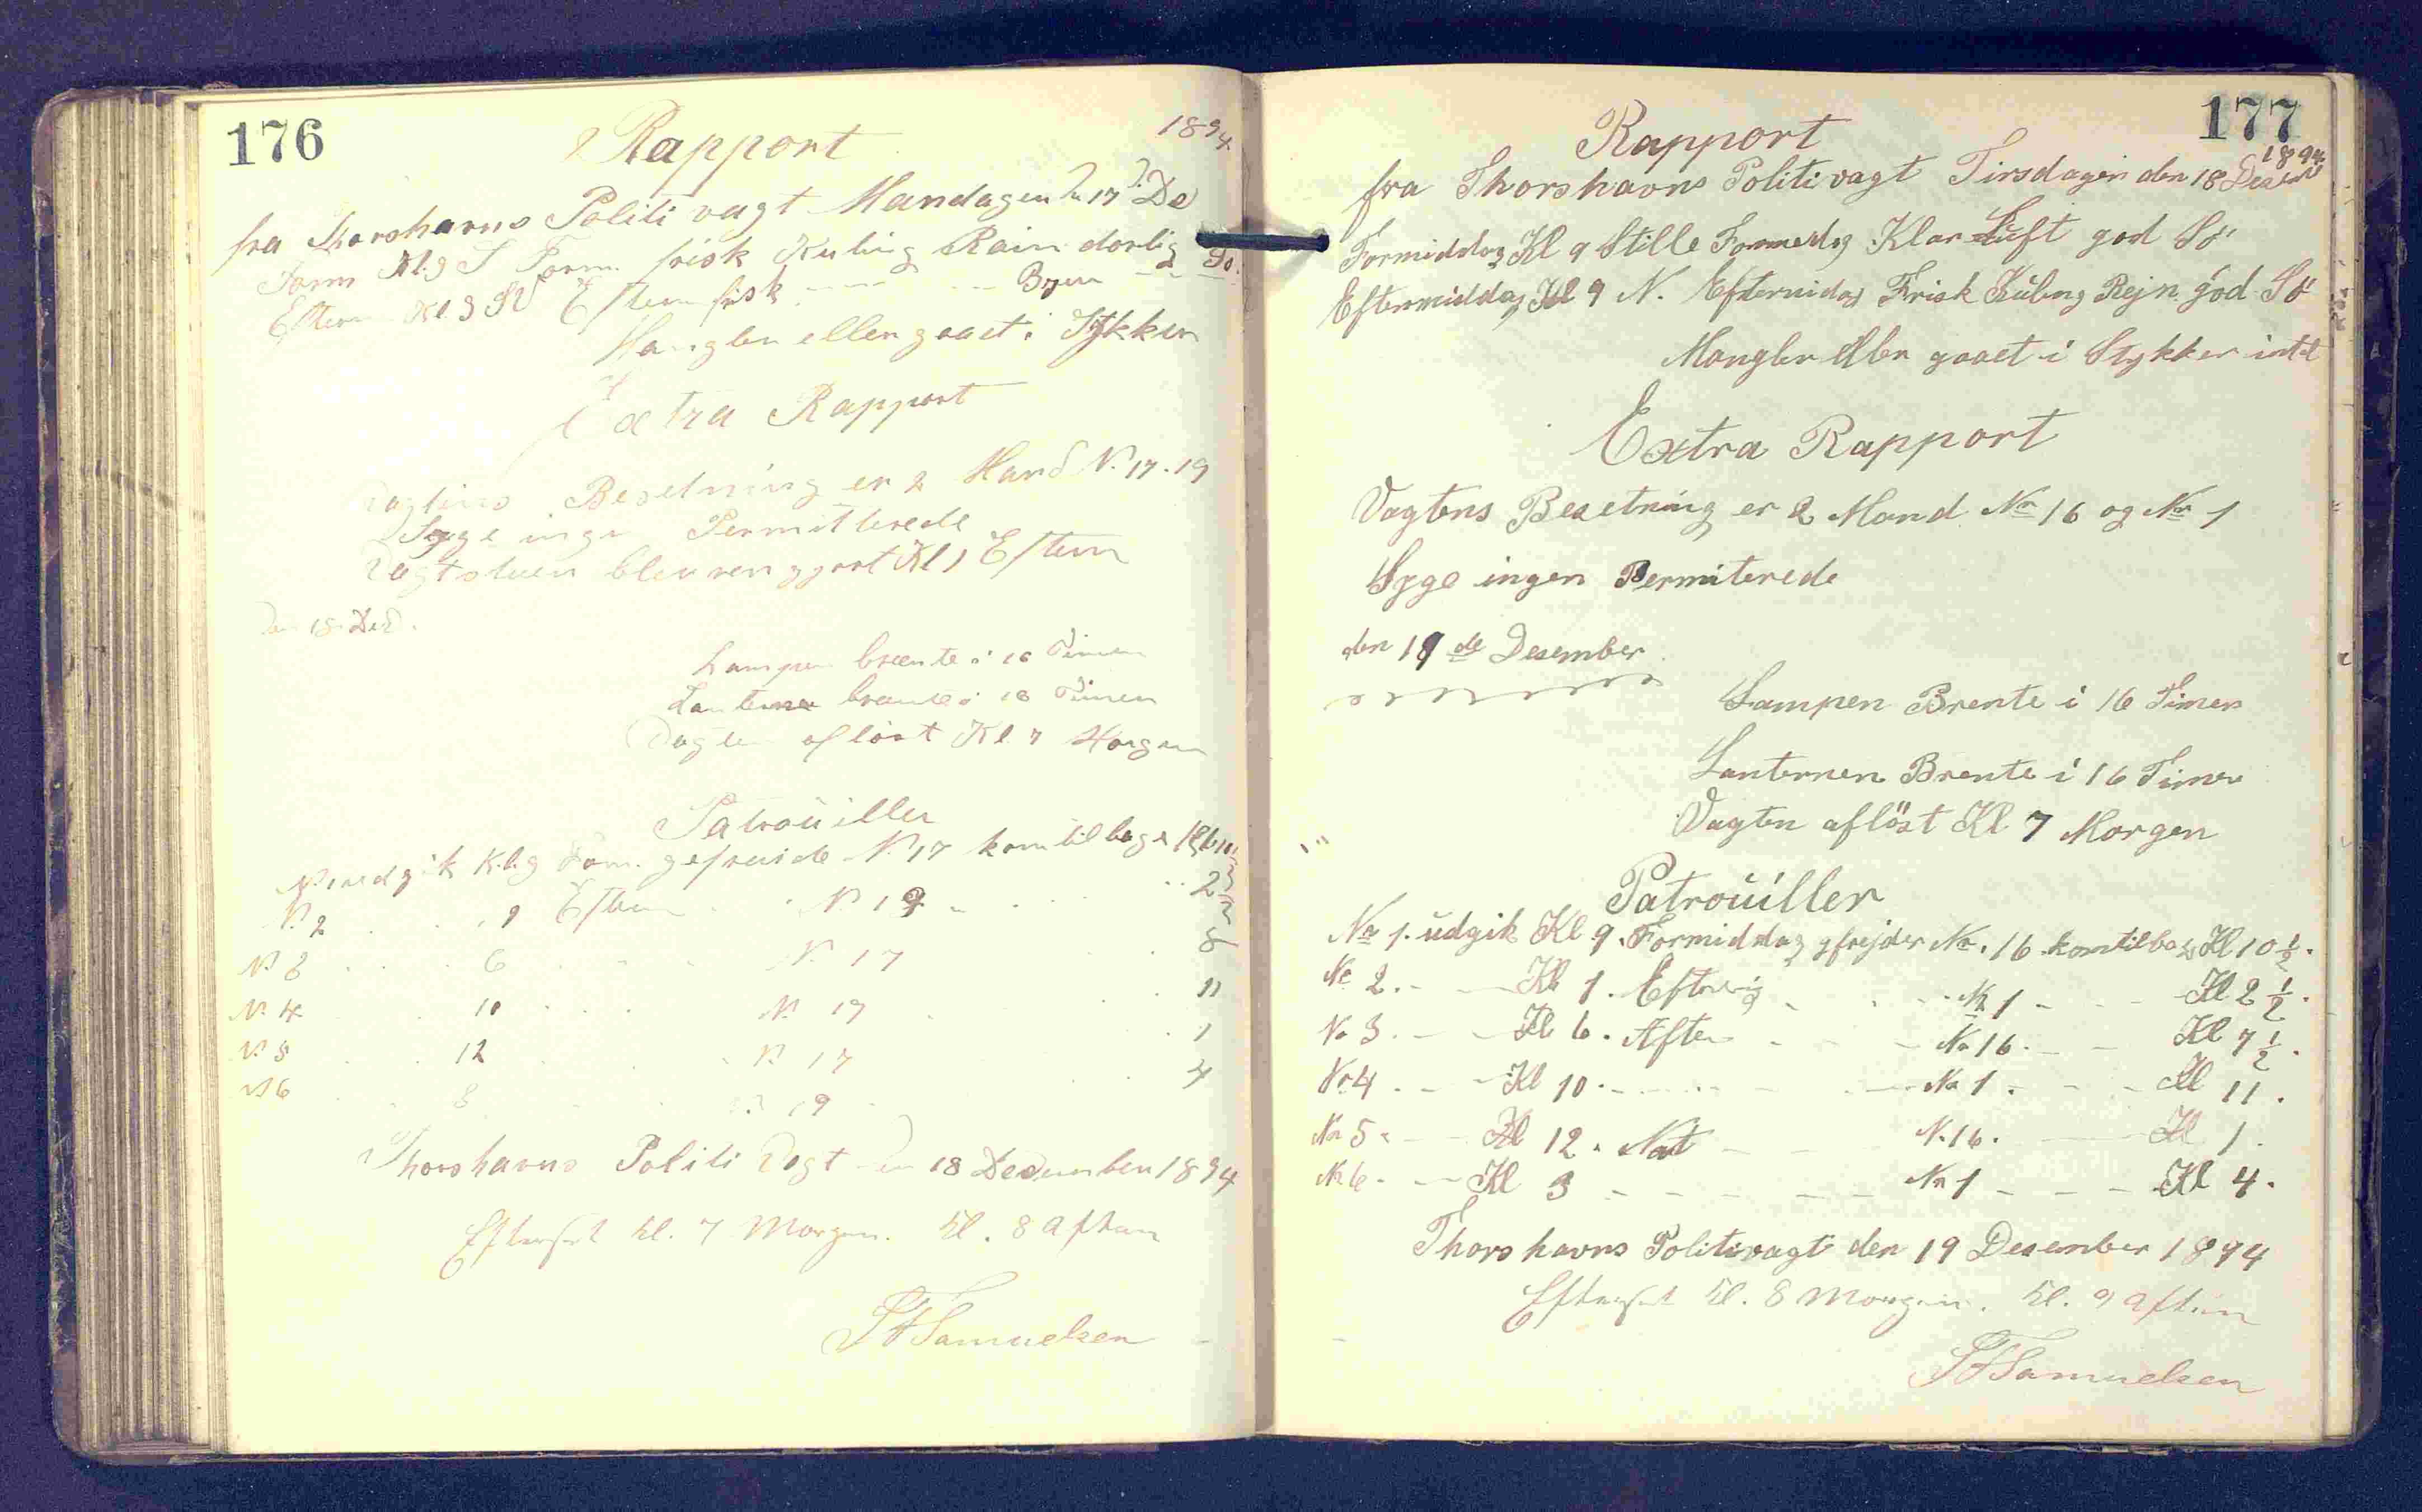 176
Rapport 1894
fra Thorshavns Politi vagt Mandagen D. 17 De
Form Kl. 9 S Form. frisk Kuling Rain dorlig So.
Eftern Kl. 9 SV Eftern frisk Byer
Mangler eller gaaet i Stykker
Extra Rapport
Vagtens Besetning er 2 Mand N. 17. 19
Syge ingen Permitterede
Vagtstuen blev rengjort Kl 1 Eftem
Den 18 Des.
Lampen brænte i 16 Timer
Lanternen brænte i 16 Timer
Vagten aflöst Kl. 7 Morgen
Patrouiller
N. 1 udgik Kl. 9 Form. gefreide N. 17 kom tilbage Kl
N. 2 1 Eftem N. 19 2
N. 3 6 N. 17 8
N. 4 10 N. 19 11
N. 5 12 N. 17 1
N. 6 3 N. 19 4
Thorshavns Politi Vagt den 18 Desember 1894
Efterset kl. 7 Morgen. kl. 8 Aften
Samuelsen
177
Rapport
1894
fra Thorshavns Politivagt Tirsdagen den 18 Desem
Formiddag Kl 9 Stille Formedg Klar Luft god Sö
Eftermiddag Kl 9 N. Eftermidag Frisk Kuling Rejn god Sö
Mangler eller gaaet i Stykker intet
Extra Rapport
Vagtens Besetning er 2 Mand Nr 16 og Nr 1
Syge ingen Permiterede
den 19 de Desember
Lampen Brente i 16 Timer
Lanternen Brente i 16 Timer
Vagten aflöst Kl 7 Morgen
Patrouiller
Nr 1. udgik Kl 9. Formiddag gfrejder Nr. 16 kom tilbag Kl 10 ½.
Nr 2. - - Kl 1. Eftmig - - Nr 1 - - - Kl 2 ½.
Nr 3. - - Kl 6. Aften - - - Nr 16. - - Kl 7 ½.
Nr 4. - - Kl 10. - - - - Nr 1. - - - Kl 11.
Nr 5. - - Kl 12. Nat - - - N. 16. - - Kl 1.
Nr 6. - - Kl 3 - - - - - Nr 1 - - - Kl 4.
Thorshavns Politivagt den 19 Desember 1894
Efterset kl. 8 Morgen. kl. 9 Aften
Samuelsen